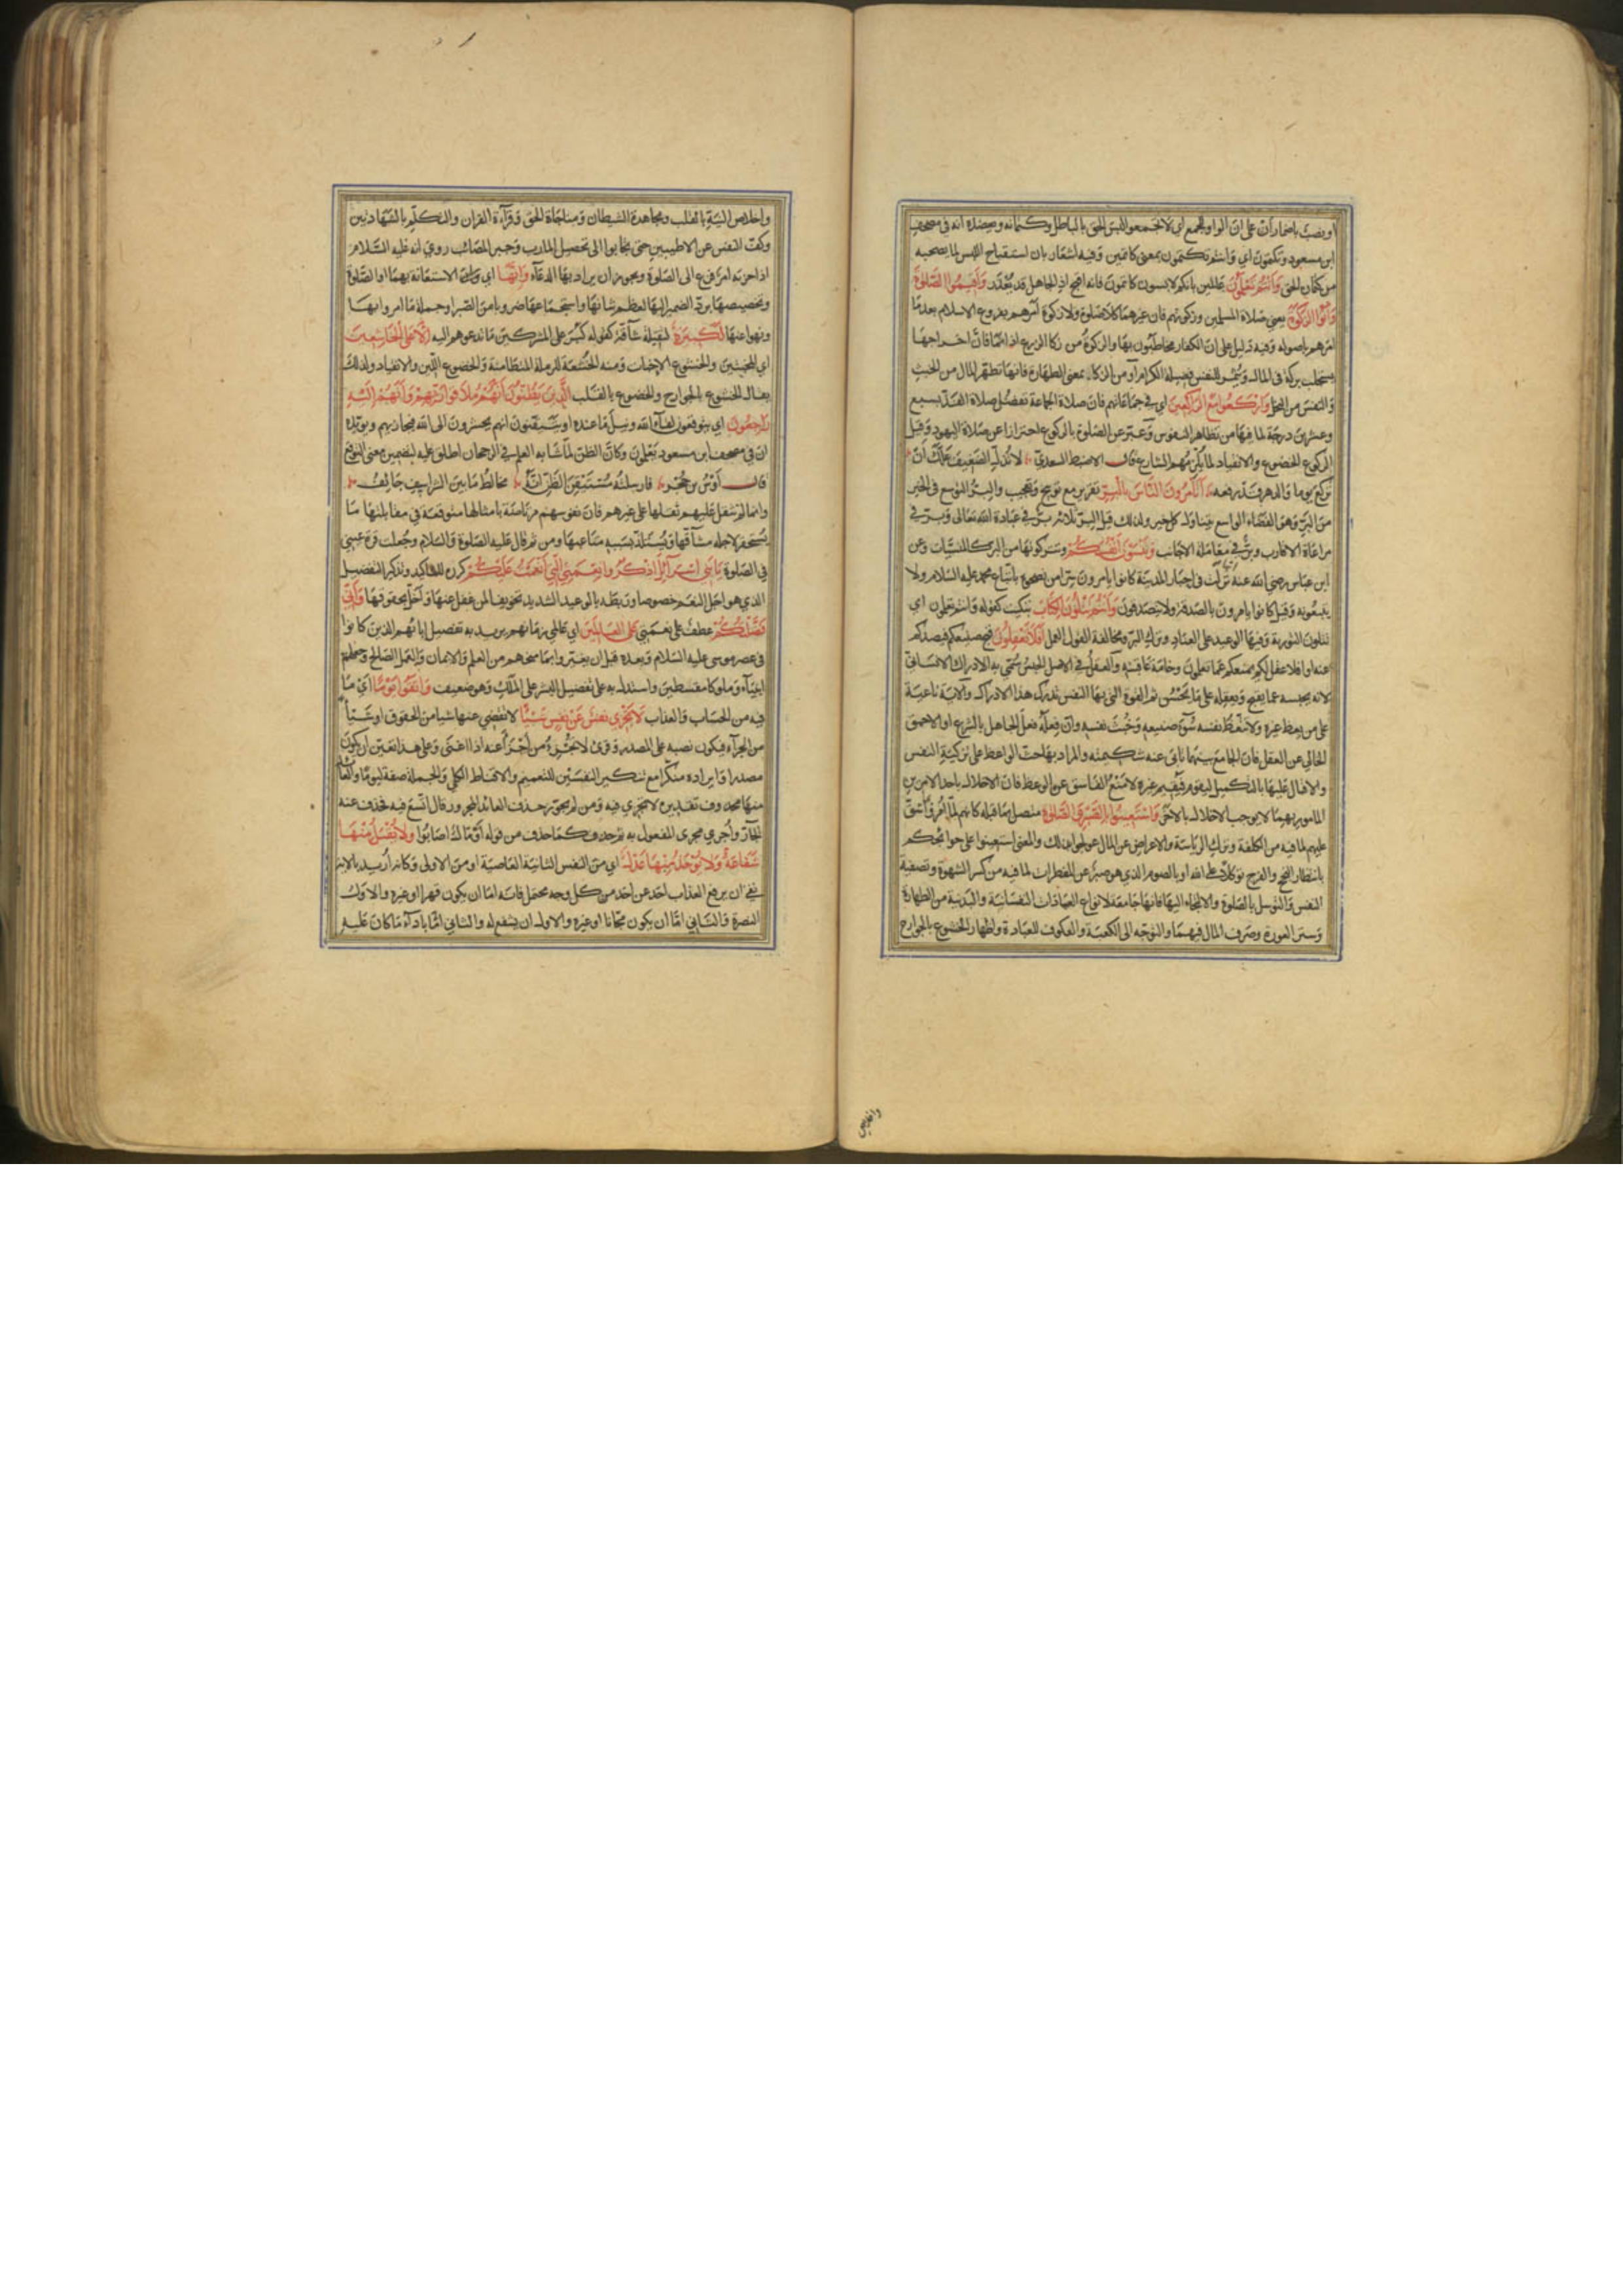 او نصب باضمار أن على ان الواو للجمع اي لا تجمعوا لبس الحق بالباطل وكتمانه ويعضده انه في مصحف
ابن مسعود وتكتمون اي وانتم تكتمون بمعنى كاتمين وفيه اشعار بان استقباح اللبس لما يصحبه
من كتمان الحق وَأَنْتُمْ تَعْلَمُونَ عالمين بانكم لابسون كاتمون فانه اقبح اذ الجاهل قد يعذر وَأَقِيمُوا الصَّلوٰةَ
وَآتُوا الزَّكوٰةَ يعني صلاة المسلمين وزكوتهم فان غيرهما كلا صلوة ولا زكوة امرهم بفروع الاسلام بعدما
امرهم باصوله وفيه دليل على ان الكفار مخاطبون بها والزكوة من زكا الزرع اذا نما فان اخراجها
يستجلب بركة في المال ويثمر للنفس فضيلة الكرم او من الزكا بمعنى الطهارة فانها تطهر المال من الخبث
والنفس من البخل وَارْكَعُوا مَعَ الرَّاكِعِينَ اي في جماعاتهم فان صلاة الجماعة تفضل صلاة الفذ بسبع
وعشرين درجة لما فيها من تظاهر النفوس وعبر عن الصلوة بالركوع احترازا عن صلاة اليهود وقيل
الركوع الخضوع والانقياد لما يلزمهم الشارع قال الاضبط السعدي لا تذل الضعيف علك ان
تركع يوما والدهر قد رفعه أَتَأْمُرُونَ النَّاسَ بِالْبِرِّ تقرير مع توبيخ وتعجيب والبر التوسع في الخير
من البر وهو الفضاء الواسع يتناول كل خير ولذلك قيل البر ثلاثة بر في عبادة الله تعالى وبر في
مراعاة الاقارب وبر في معاملة الاجانب وَتَنْسَوْنَ أَنْفُسَكُمْ وتتركونها من البر كالمنسيات وعن
ابن عباس رضي الله عنه نزلت في احبار المدينة كانوا يامرون سرا من نصحوه باتباع محمد عليه السلام ولا
يتبعونه وقيل كانوا يامرون بالصدقة ولا يتصدقون وَأَنْتُمْ تَتْلُونَ الْكِتَابَ تبكيت كقوله وانتم تعلمون اي
تتلون التورية وفيها الوعيد على العناد وترك البر ومخالفة القول العمل أَفَلَا تَعْقِلُونَ قبح صنيعكم فيصدكم
عنه او افلا عقل لكم يمنعكم عما تعلمون وخامة عاقبته والعقل في الاصل الحبس سمي به الادراك الانساني
لانه يحبسه عما يقبح ويعقله على ما يحسن ثم القوة التي بها النفس تدرك هذا الادراك والاية ناعية
على من يعظ غيره ولا يتعظ نفسه سوء صنيعه وخبث نفسه وان فعله فعل الجاهل بالشرع او الاحمق
الخالي عن العقل فان الجامع بينهما تابى عنه شكيمته والمراد بها حث الواعظ على تزكية النفس
والاقبال عليها بالتكميل ليقوم فيقيم غيره لا منع الفاسق عن الوعظ فان الاخلال باحد الامرين
المامور بهما لا يوجب الاخلال بالاخر وَاسْتَعِينُوا بِالصَّبْرِ وَالصَّلوٰةِ متصل بما قبله كانهم لما امروا بما شق
عليهم لما فيه من الكلفة وترك الرياسة والاعراض عن المال عولجوا بذلك والمعنى استعينوا على حوائجكم
بانتظار النجح والفرج توكلا على الله او بالصوم الذي هو صبر عن المفطرات لما فيه من كسر الشهوة وتصفية
النفس والتوسل بالصلوة والالتجاء اليها فانها جامعة لانواع العبادات النفسانية والبدنية من الطهارة
وستر العورة وصرف المال فيهما والتوجه الى الكعبة والعكوف للعبادة واظهار الخشوع بالجوارح
واخلاص
واخلاص النية بالقلب ومجاهدة الشيطان ومناجاة الحق وقراءة القران والتكلم بالشهادتين
وكف النفس عن الاطيبين حتى تجابوا الى تحصيل المارب وجبر المصائب روي انه عليه السلام
اذا حزبه امر فزع الى الصلوة ويجوز ان يراد بها الدعاء وَإِنَّهَا اي وان الاستعانة بهما او الصلوة
وتخصيصها برد الضمير اليها لعظم شانها واستجماعها ضروبا من الصبر او جملة ما امروا بها
ونهوا عنها لَكَبِيرَةٌ لثقيلة شاقة كقوله كبر على المشركين ما تدعوهم اليه إِلَّا عَلَى الْخَاشِعِينَ
اي المخبتين والخشوع الاخبات ومنه الخشعة للرملة المتطامنة والخضوع اللين والانقياد ولذلك
يقال الخشوع بالجوارح والخضوع بالقلب الَّذِينَ يَظُنُّونَ أَنَّهُمْ مُلَاقُوا رَبِّهِمْ وَأَنَّهُمْ إِلَيْهِ
رَاجِعُونَ اي يتوقعون لقاء الله ونيل ما عنده او يتيقنون انهم يحشرون الى الله فيجازيهم ويؤيده
ان في مصحف ابن مسعود يعلمون وكان الظن لما شابه العلم في الرجحان اطلق عليه لتضمين معنى التوقع
قال اوس بن حجر فارسلته مستيقن الظن انه مخالط ما بين الشراسيف جائف
وانما لم تثقل عليهم ثقلها على غيرهم فان نفوسهم مرتاضة بامثالها متوقعة في مقابلتها ما
يستحقر لاجله مشاقها ويستلذ بسببه متاعبها ومن ثم قال عليه الصلوة والسلام وجعلت قرة عيني
في الصلوة يَا بَنِي إِسْرَائِيلَ اذْكُرُوا نِعْمَتِيَ الَّتِي أَنْعَمْتُ عَلَيْكُمْ كرره للتاكيد وتذكير التفضيل
الذي هو اجل النعم خصوصا وربطه بالوعيد الشديد تخويفا لمن غفل عنها واخل بحقوقها وَأَنِّي
فَضَّلْتُكُمْ عطف على نعمتي عَلَى الْعَالَمِينَ اي عالمي زمانهم يريد به تفضيل ابائهم الذين كانوا
في عصر موسى عليه السلام وبعده قبل ان يغيروا بما منحهم من العلم والايمان والعمل الصالح وجعلهم
انبياء وملوكا مقسطين واستدل به على تفضيل البشر على الملك وهو ضعيف وَاتَّقُوا يَوْمًا اي ما
فيه من الحساب والعذاب لَا تَجْزِي نَفْسٌ عَنْ نَفْسٍ شَيْئًا لا تقضي عنها شيا من الحقوق او شيئا
من الجزاء فيكون نصبه على المصدر وقرئ لا تجزئ من اجزأ عنه اذا اغنى وعلى هذا تعين ان يكون
مصدرا وايراده منكرا مع تنكير النفسين للتعميم والاقناط الكلي والجملة صفة ليوما والعائد
منها محذوف تقديره لا تجزي فيه ومن لم يجوز حذف العائد المجرور قال اتسع فيه فحذف عنه
الجار واجري مجرى المفعول به ثم حذف كما حذف من قوله او مال اصابوا وَلَا يُقْبَلُ مِنْهَا
شَفَاعَةٌ وَلَا يُؤْخَذُ مِنْهَا عَدْلٌ اي من النفس الثانية العاصية او من الاولى وكانه اريد بالاية
نفي ان يدفع العذاب احد عن احد من كل وجه محتمل فانه اما ان يكون قهرا او غيره والاول
النصرة والثاني اما ان يكون مجانا او غيره والاول ان يشفع له والثاني اما باداء ما كان عليه